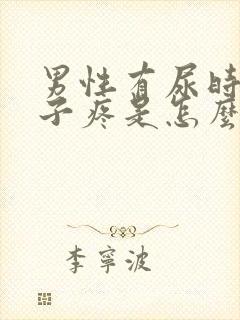 男性有尿時
子疼是怎麼
李寧波